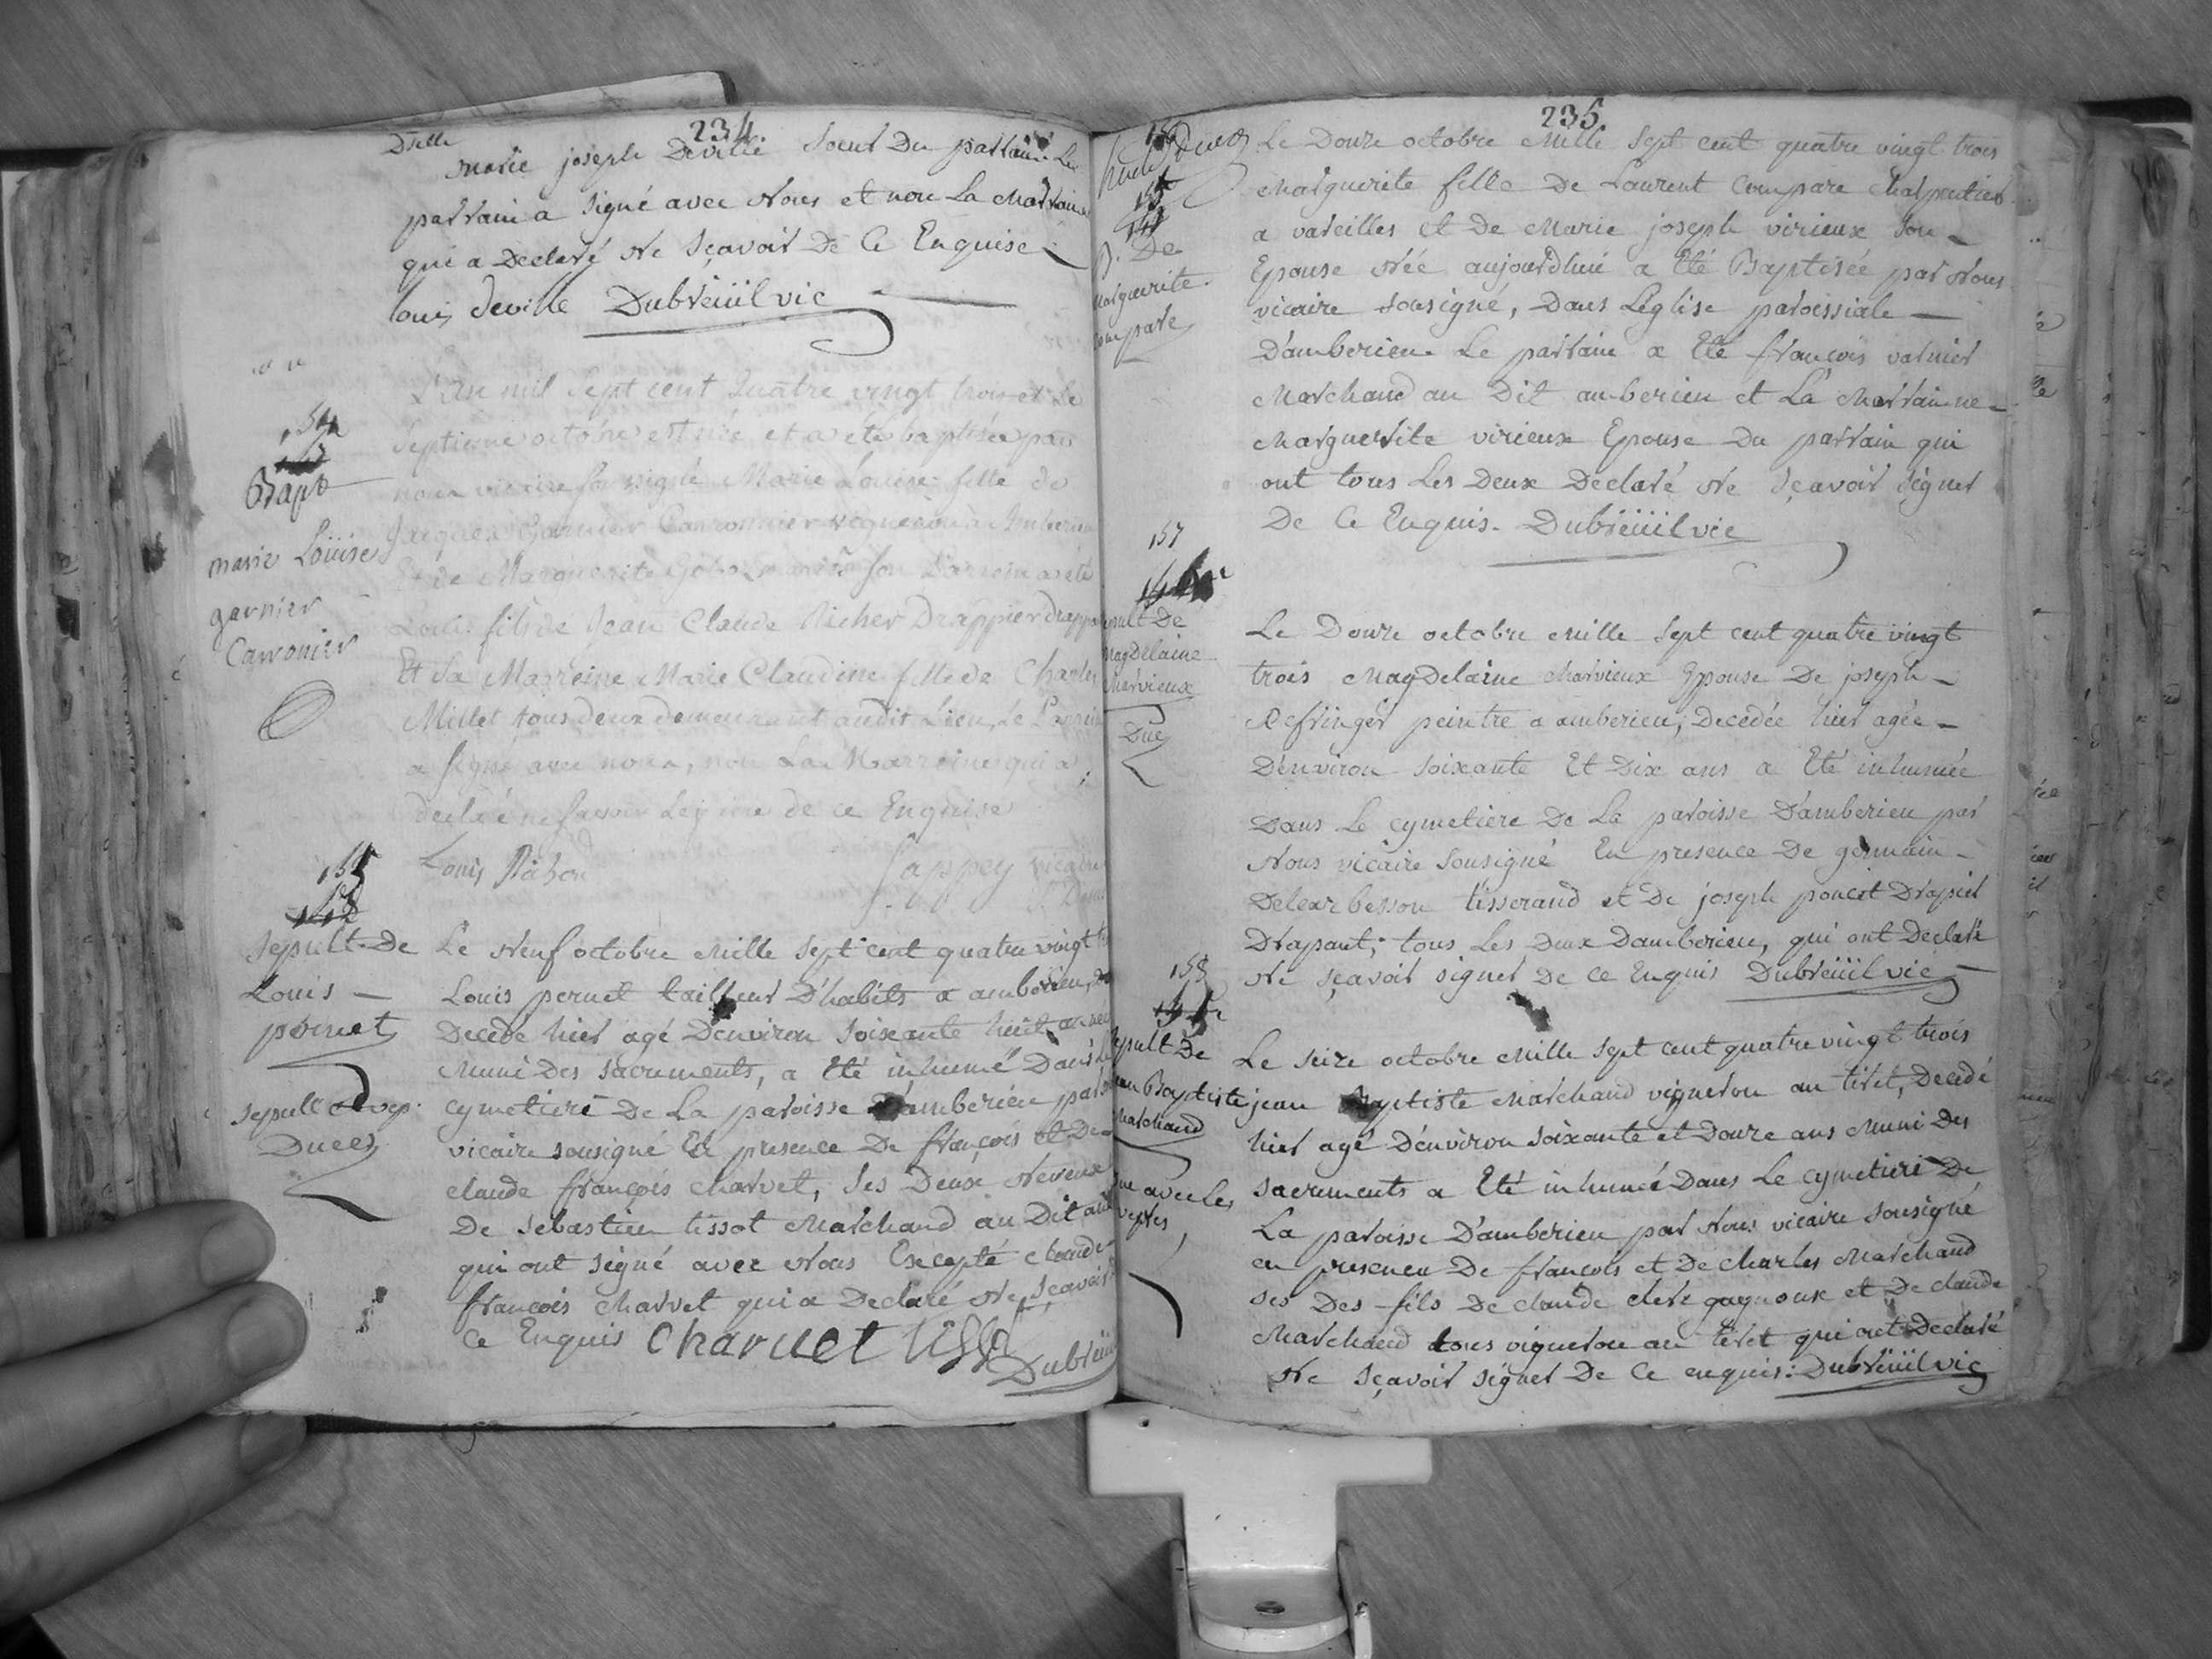 234
Dlle
marie joseph Deville soeur Du parrain Le
parrain a signé avec Nous et non La Marraine
qui a Declaré Ne Sçavoir De Ce Enquise
louis deville Dubreüil vic
154
Bapt
marie Loüise
garnier
Carronier
L'an mil sept cent quatre vingt trois et le
septieme octobre est née et a eté baptisée par
nous vicaire soussigné Marie Louise fille de
Jacques Garnier Carronnier vigneron a Amberieu
Et de Marguerite son Parrein a été
Louis fils de Jean Claude Richer Drappier drappant
Et la Marreine Marie Claudine fille de Charles
Millet tous deux demeurant audit Lieu, Le Parrein
a signé avec nous, non La Marreine qui a
declaré ne savoir de ce Enquise
Louis Sappey vicaire
155
sepult. De
Louis
pernet
sepult
Dues
Le Neuf octobre Mille sept cent quatre vingt
Louis pernet tailleur D'habits a amberieu,
Decedé hier agé Denviron soixante huit
Muni Des sacrements, a Eté inhumé Dans
cymetiere De La paroisse D'amberieu par
vicaire sousigné En presence De françois et De
claude françois charvet, ses Deux Neveux
De sebastien tissot Marchand au Dit
qui ont signé avec Nous Excepté claude
françois charvet qui a Declaré Ne Sçavoir
Ce Enquis Charvet tissot
Dubreüil
235
B. De
marguerite
compare
Le Douze octobre Mille sept cent quatre vingt trois
Marguerite fille De Laurent compare charpentier
a vareilles et De Marie joseph virieux son
Epouse Née aujourdhui a Eté Baptisée par Nous
vicaire sousigné, Dans L'église paroissiale
D'amberieu Le parrain a Eté françois varnier
Marchand au Dit amberieu et La Marraine
Marguerite virieux Epouse Du parrain qui
ont tous Les Deux Declaré Ne Sçavoir signer
De Ce Enquis. Dubreüil vic
157
sepult De
magDelaine
Marvieux
Due
Le Douze octobre Mille sept cent quatre vingt
trois MagDelaine Marvieux Epouse De joseph
Refringer peintre a amberieu, Decedée hier agée
D'environ soixante Et Dix ans a Eté inhumée
Dans Le cymetiere De La paroisse D'amberieu par
Nous vicaire sousigné En presence De germain
besson tisserand et De joseph poncet Drapier
Drapant; tous Les Deux Damberieu, qui ont Declaré
Ne Sçavoir signer De Ce Enquis Dubreüil vic
158
sepult De
jean Baptiste
marchand
Due avec les
vepres
Le seize octobre Mille sept cent quatre vingt trois
jean Baptiste Marchand vigneron au tiret, Decedé
hier agé D'environ soixante et Douze ans Muni Des
sacrements a Eté inhumé Dans Le cymetiere De
La paroisse D'amberieu par Nous vicaire sousigné
en presence De françois et De charles Marchand
ses Des fils De claude et De claude
Marchand tous vigneron au tiret qui ont Declaré
Ne Sçavoir signer De Ce enquis: Dubreüil vic